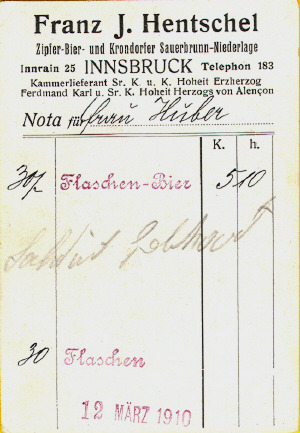 Franz J. Hentschel
Zipfer-Bier- und Krondorfer Sauerbrunn-Niederlage
Innrain 25 INNSBRUCK Telephon 183
Kammerlieferant Sr. K. u. K. Hoheit Erzherzog
Ferdinand Karl u. Sr. K. Hoheit Herzogs von Alençon
Nota für Frau Huber
K. h.
30/ Flaschen-Bier 5 10
30 Flaschen
12 MÄRZ 1910